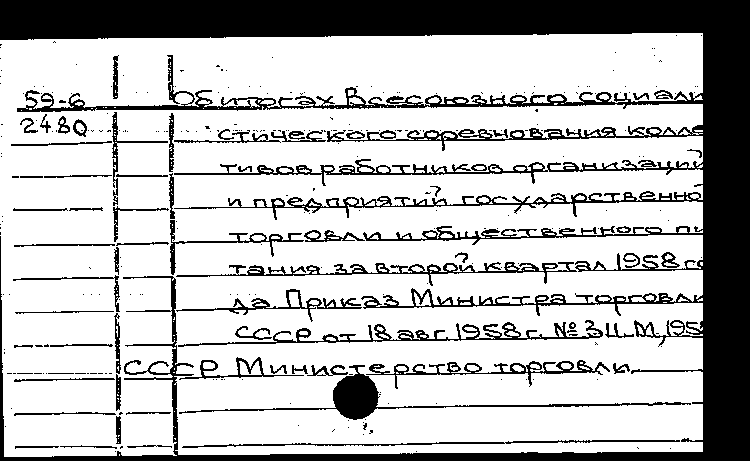 59-6 Об итогах Всесоюзного социали
2480 стического соревнования колле
тивов работников организаций
и предприятий государственно
торговли и общественного пи
тания за второй квартал 1958 го
да. Приказ Министра торговли
СССР от 18 авг. 1958 г. № 311. М, 195
СССР Министерство торговли.